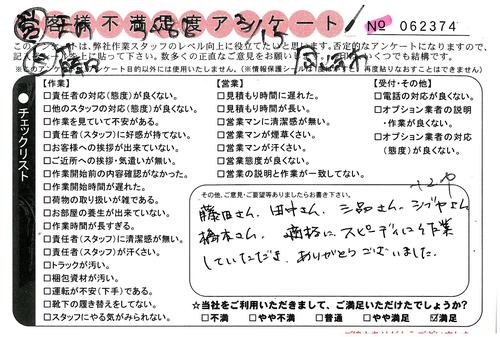 お客様不満足度アンケート
No 062374
このアンケートは、弊社作業スタッフのレベル向上に役立てたいと思います。否定的なアンケートになりますので、
※このアンケート目的以外には使用いたしません。
チェックリスト
【作業】
□責任者の対応(態度)が良くない。
□他のスタッフの対応(態度)が良くない。
□作業を見ていて不安がある。
□責任者(スタッフ)に好感が持てない。
□お客様への挨拶が出来ていない。
□ご近所への挨拶・気遣いが無い。
□作業開始前の内容確認がなかった。
□作業開始時間が遅れた。
□荷物の取り扱いが雑である。
□お部屋の養生が出来ていない。
□作業時間が長すぎる。
□責任者(スタッフ)に清潔感が無い。
□責任者(スタッフ)が汗くさい。
□トラックが汚い。
□梱包資材が汚い。
□運転が不安(下手)である。
□靴下の履き替えをしてない。
□スタッフにやる気がみられない。
【営業】
□見積もり時間に遅れた。
□見積もり時間が長い。
□営業マンに清潔感が無い。
□営業マンが煙草くさい。
□営業マンが汗くさい。
□営業態度が良くない。
□営業の説明と作業が一致してない。
【受付・その他】
□電話の対応が良くない。
□オプション業者の説明
・作業が良くない。
□オプション業者の対応
(態度)が良くない。
その他、ご意見・ご要望等ありましたらお書き下さい。
藤田さん、田中さん、三品さん、シブヤさん
橋本さん、適格にスピーディに作業
していただき、ありがとうございました。
☆当社をご利用いただきまして、ご満足いただけたでしょうか?
□不満 □やや不満 □普通 □やや満足 ☑満足